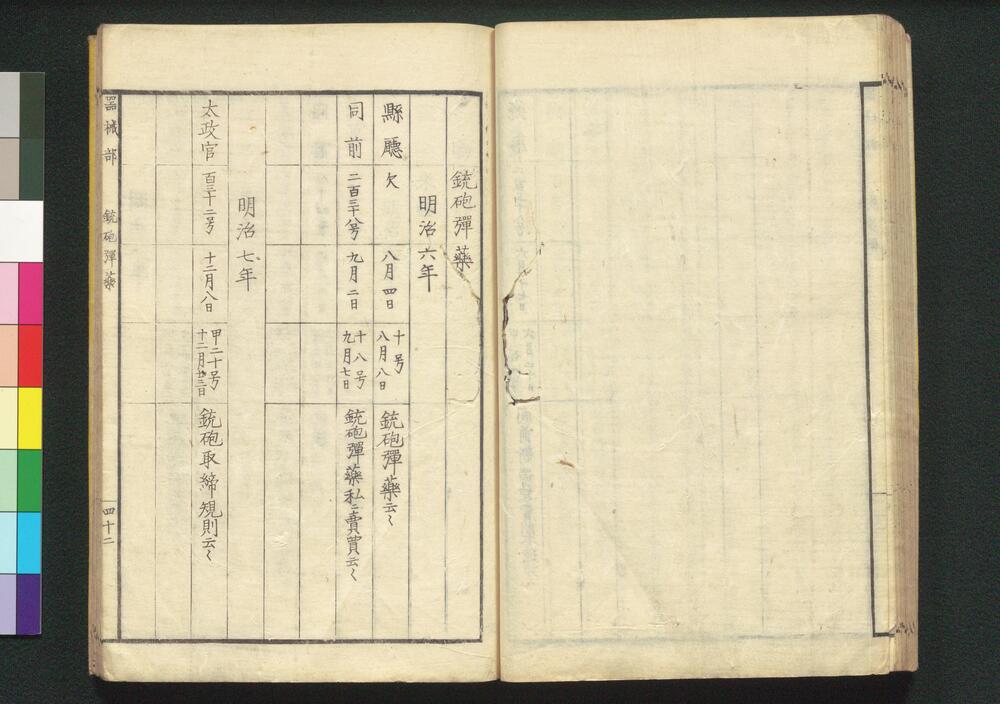 銃砲彈藥
明治六年
縣廳 欠 八月四日 十号 八月八日 銃砲彈藥云〻
同前 二百三十八号 九月二日 十八号 九月七日 銃砲彈藥私ニ賣買云〻
明治七年
太政官 百三十二号 十二月八日 甲二十号 十二月廿三日 銃砲取締規則云〻
器械部 銃砲彈藥 四十二